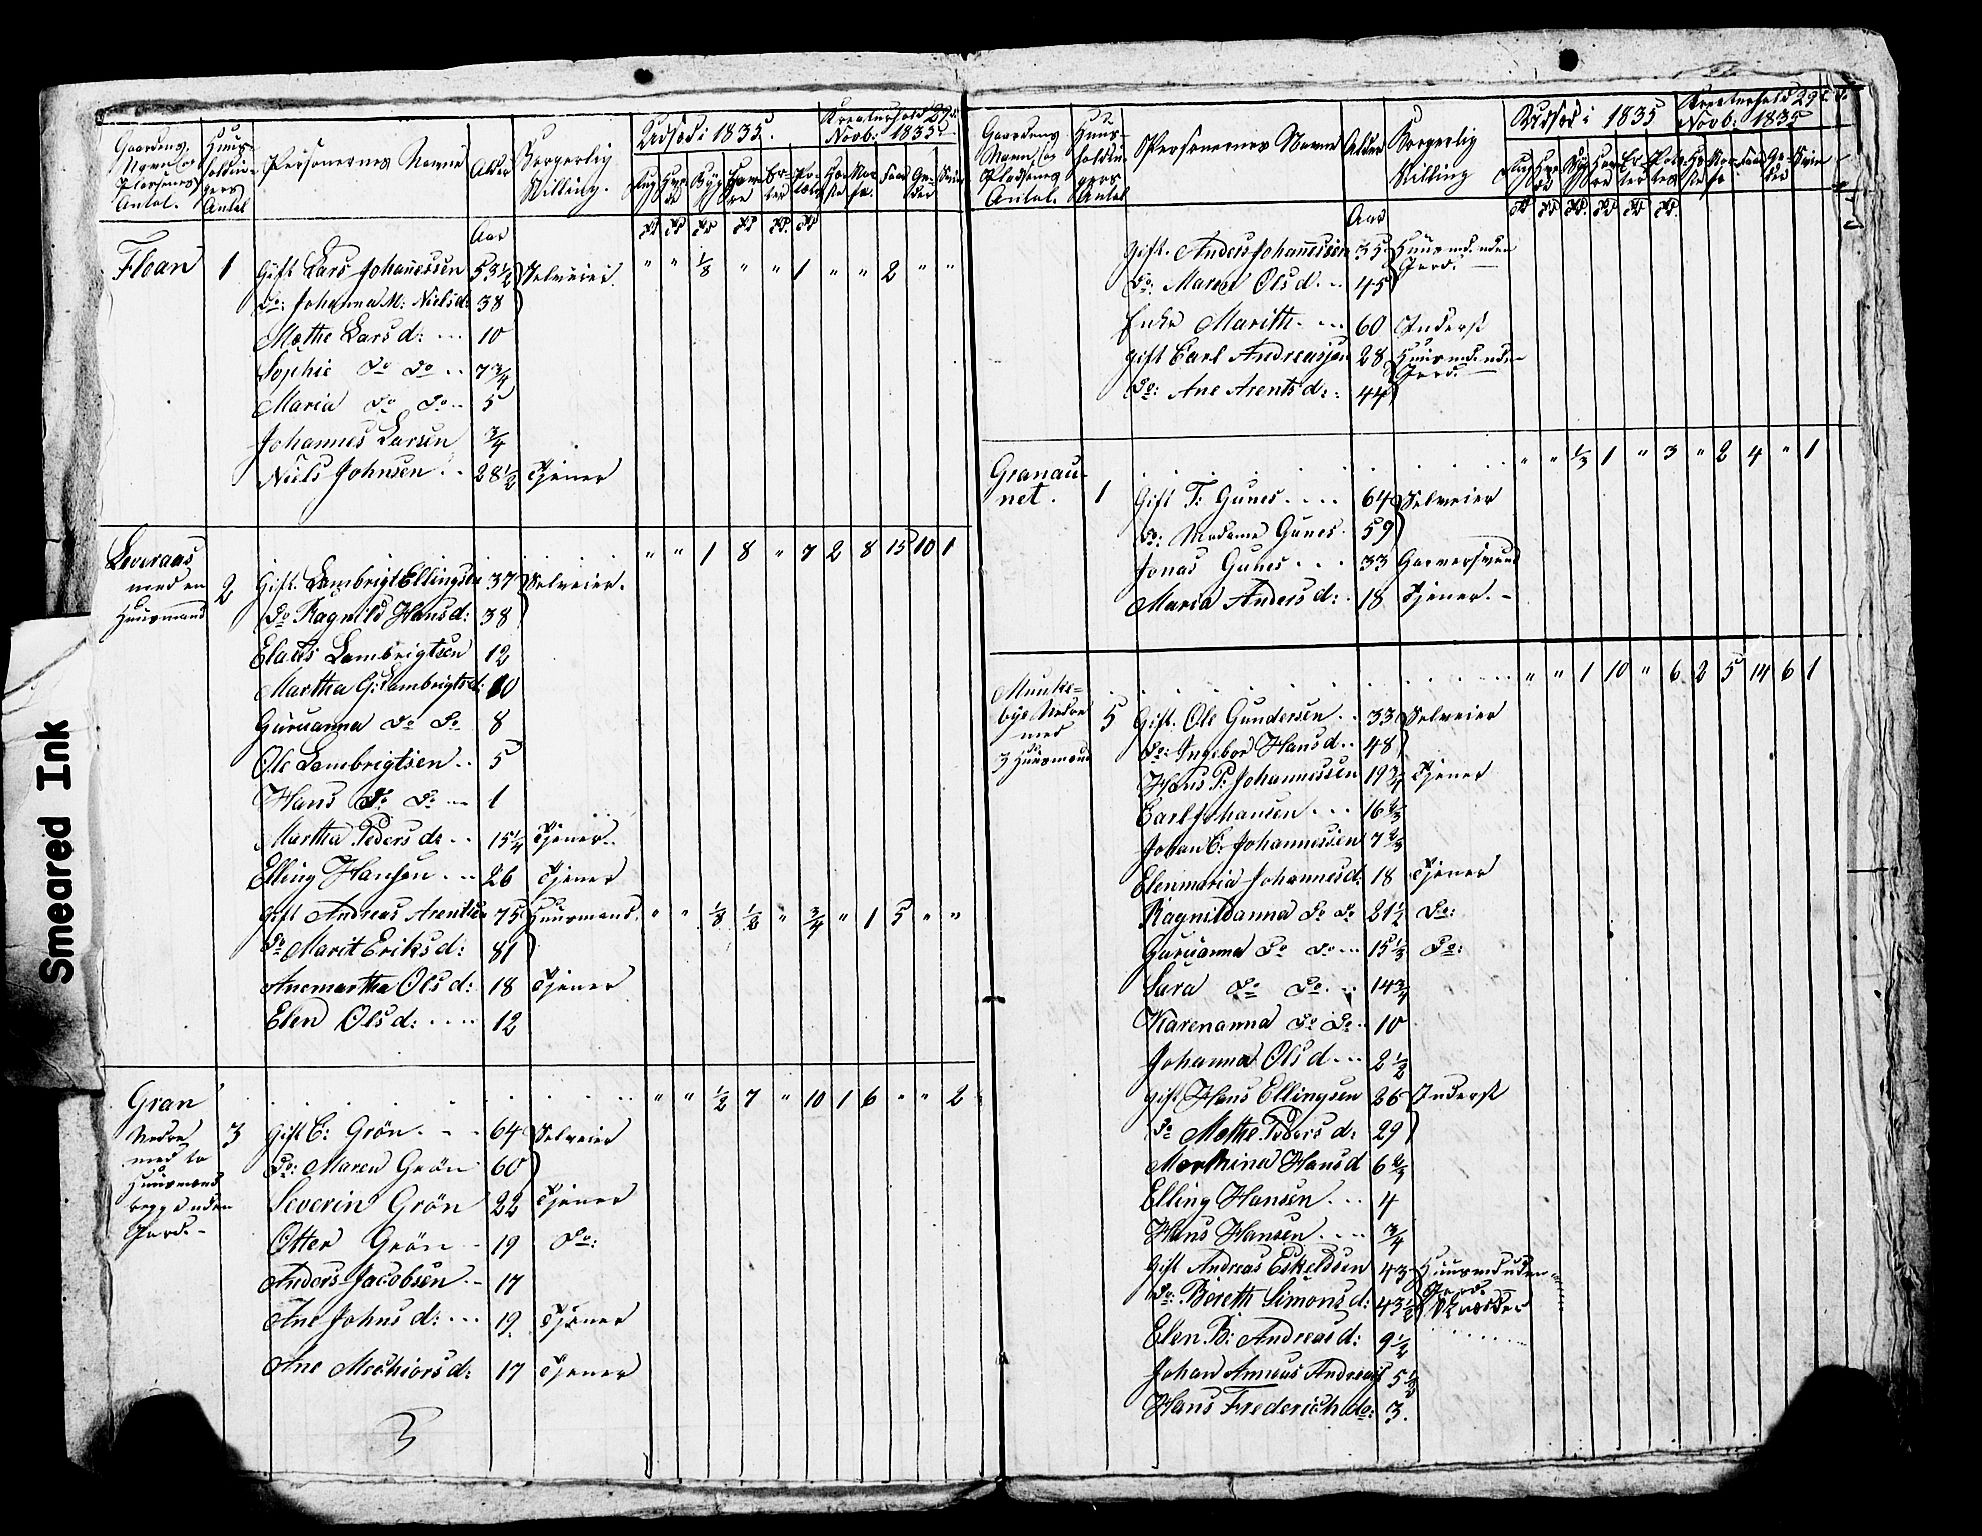 Smeared Ink
Gaardens Navn, og Pladsenes Antal. Huus-holdnin-gers Antal Personernes Navne Alder Borgerlig Stilling. Udsæd i 1835. Kreaturhold 29d. Novb: 1835
Rug Hve-de Byg Hav-re Er-ter Po-teter He-ste Kør Faar Ge-der Sviin
Aar
Floan 1 Gift Lars Johanessen 53½ Selveier. " " ⅛ " " 1 " " 2 " "
Do: Johanna M: Nielsd: 38
Mæthe Larsd: 10
Sophie Do Do 7¾
Maria Do Do 5
Johannes Larsen ¾
Niels Johnsen 28½ Tjener
Leveraas " " 1 8 " 7 2 8 15 10 1
med en 2 Gift. Lambrigt Ellingsen 37 Selveier.
Huusmand Do Ragnild Hansd: 38
Claus Lambrigtsen 12
Martha G: Lambrigtsd: 10
Guruanna Do Do 8
Ole Lambrigtsen 5
Hans Do Do 1
Martha Pedersd: 15¼ Tjener
Elling Hansen 26 Tjener
Gift Andreas Arentsen 75 Huusmand. " " ⅛ ½ " ¾ " 1 5 " "
Do Marit Eriksd: 81
Anemartha Olsd: 18 Tjener
Elen Olsd: 12
Gran " " ½ 7 " 10 1 6 " " 2
Nedre 3 Gift C: Grön 64 Selveier
med to Do: Maren Grön 60
Huusmænd
begge uden Severin Grön 22 Tjener
Jord.- Otter Grön 19 Do:
Anders Jacobsen 17
Ane Johnsd: 19. Tjener
Ane Mechiorsd: 17 Tjener
3
Gaardens Navn, og Pladsenes Antal. Huus-holdnin-gers Antal Personernes Navne Alder Borgerlig Stilling Udsæd i 1835 Kreaturhold 29d. Novb: 1835
Rug Hve-de Byg Hav-re Er-ter Pote-ter He-ste Kør Faar Ge-der Sviin
Aar
Gift. Anders Johannessen 35 Huusmd. uden Jord.
Do: Maren Olsd 45
Enke Marith 60 Inderst
gift Carl Andreassen 28 Huusmd. uden Jord.
Do: Ane Arentsd: 44
Granau- " " ⅓ 1 " 3 " 2 4 " 1
net. 1 Gift T: Gunes 64 Selveier
Do: Madame Gunes 59
Jonas Gunes 33 Garversvend
Maria Andersd: 18 Tjener.-
Munke- " " 1 10 " 6 2 5 14 6 1
bye Nedre 5 Gift. Ole Gundersen 33 Selveier
med Do: Ingebor Hansd 48
3 Huusmænd Hans P: Johannessen 19¾ Tjener
Carl Johansen 16⅔
Johan C: Johannessen 7⅔
Elenmaria Johannesd: 18 Tjener
Ragnildanna Do Do 21½ Do:
Guruanna Do Do 15⅓ Do:
Sara Do Do 14¾
Karenanna Do Do 10
Johanna Olsd 2½
gift Hans Ellingsen 26 Inderst
Do Mæthe Pedersd: 29
Hansd 6⅔
Elling Hansen 4
Hans Hansen ¾
Gift Andreas Eskeldsen 43 Huusmd uden Jord.
Do: Bereth Simonsd: 43½
Elen B: Andreasd: 9½
Johan Andreas 5½
Hans Frederich do: 3.